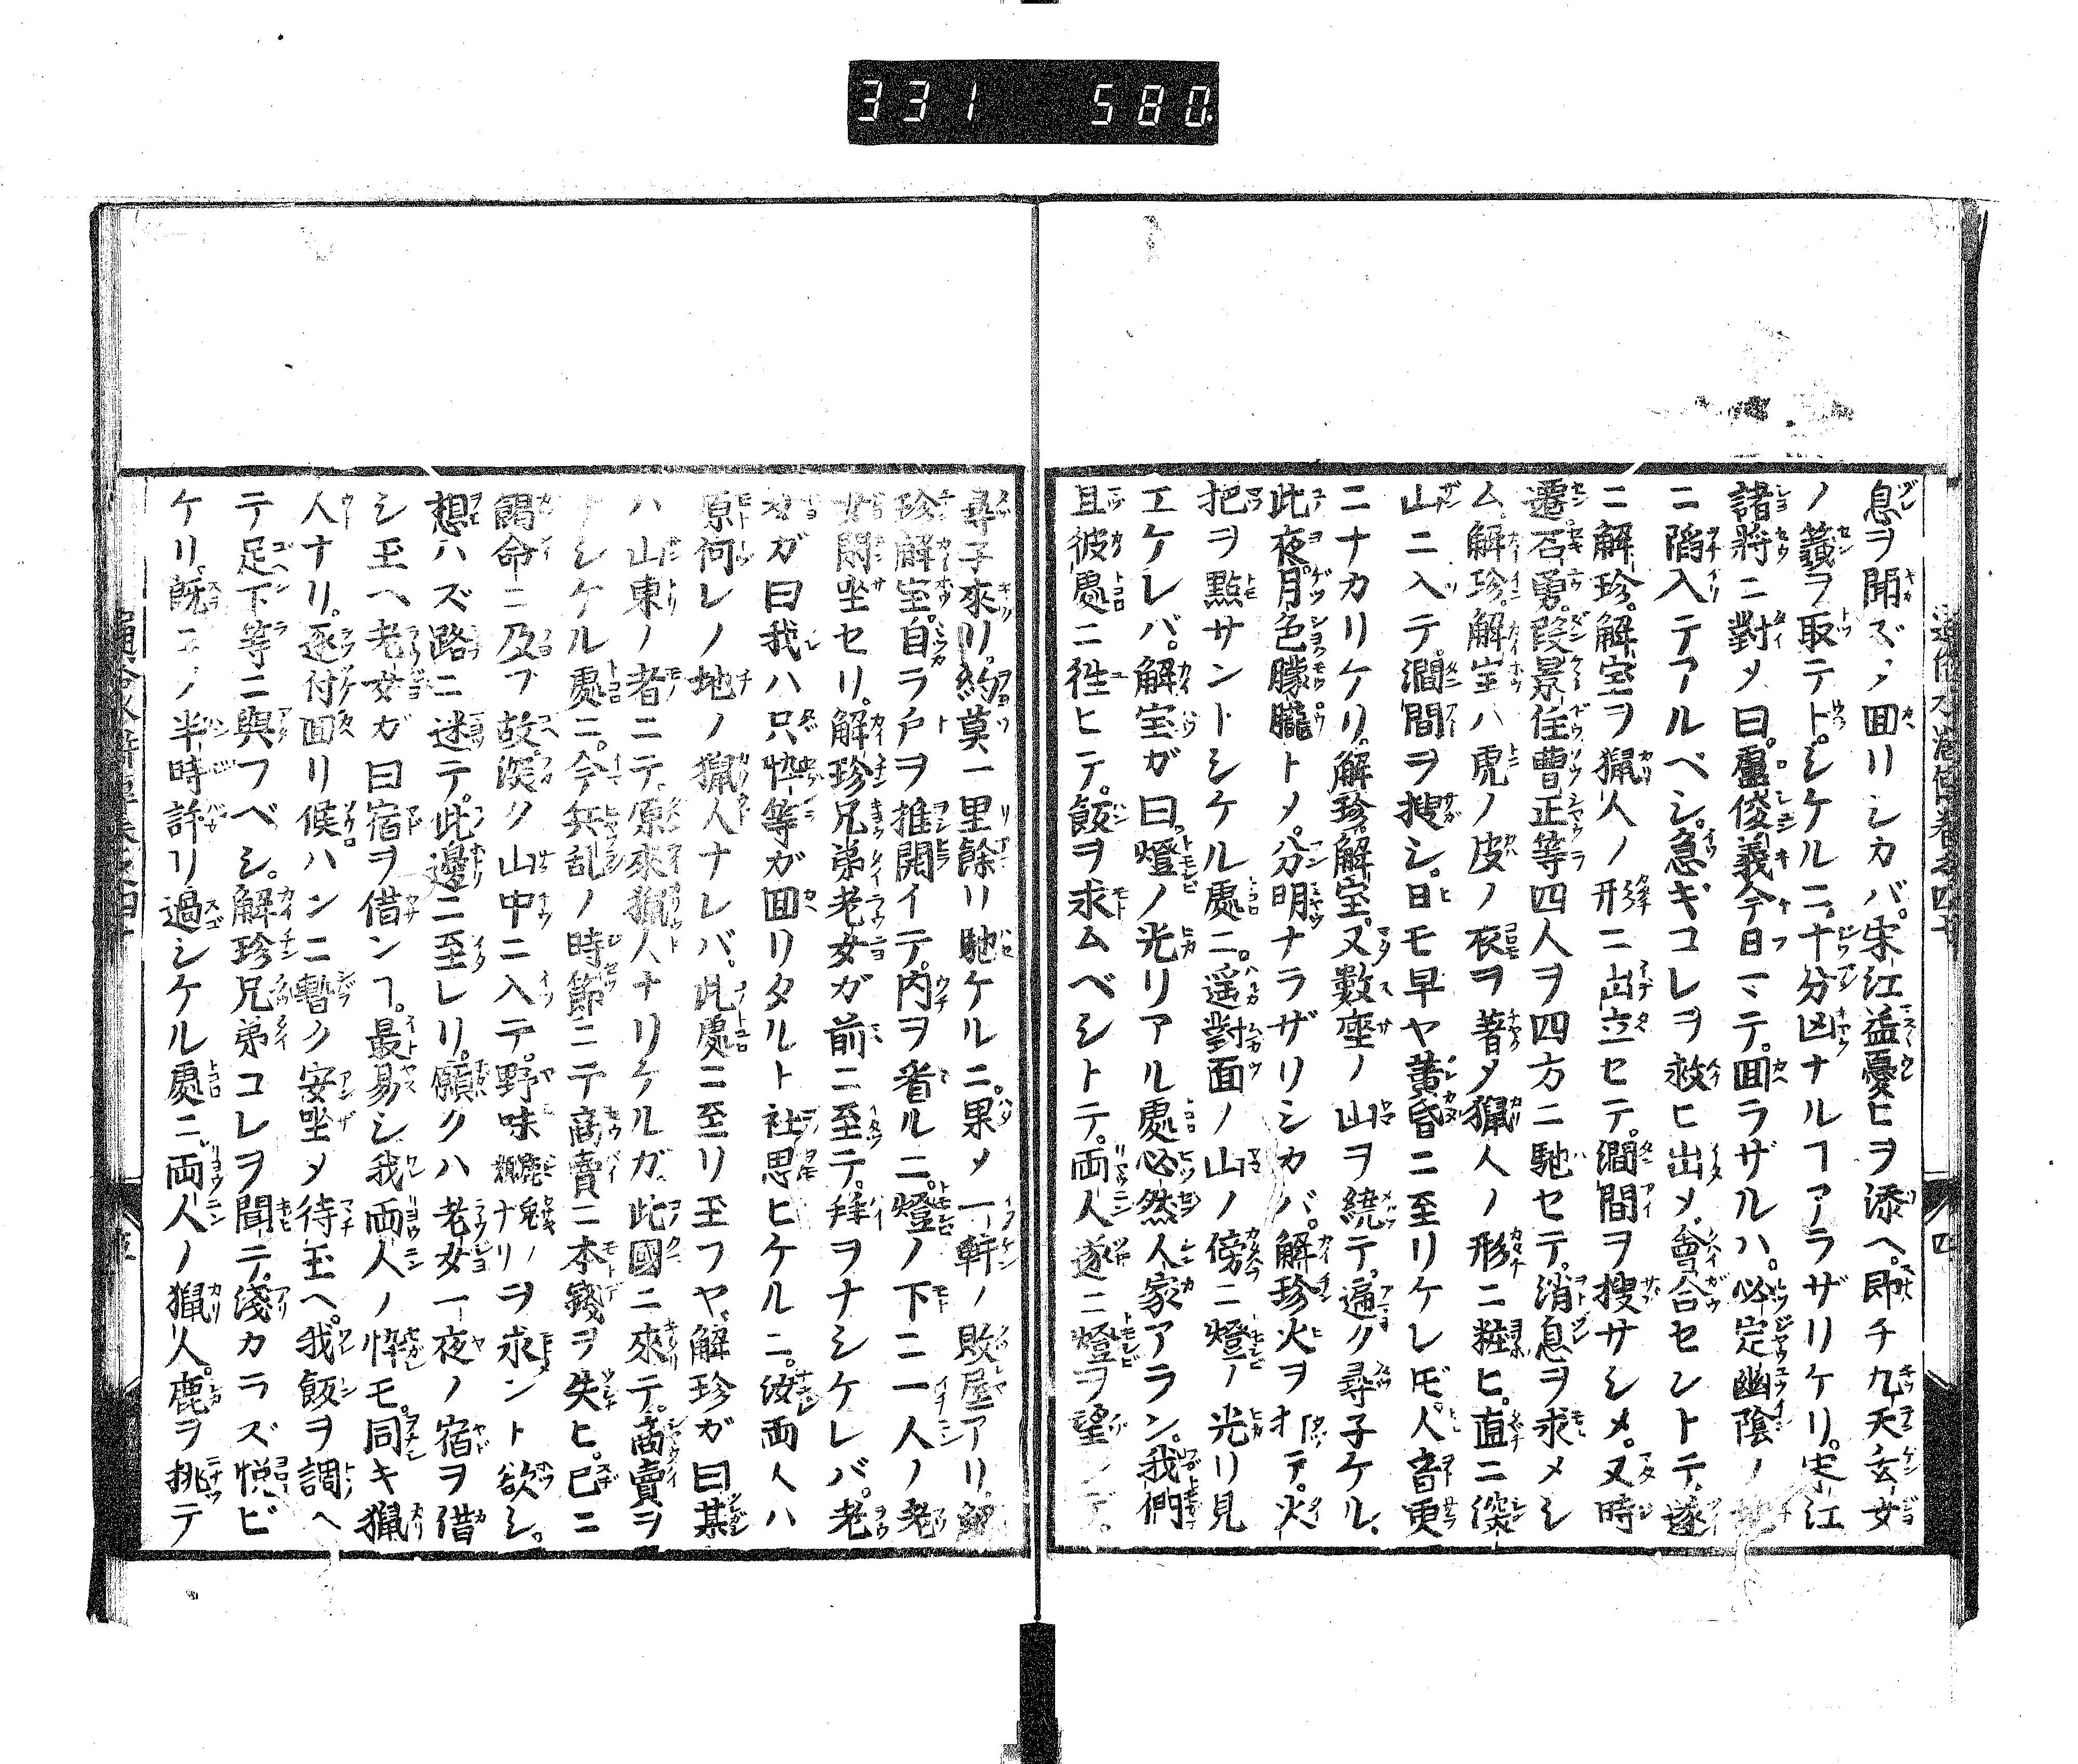 331 580.
息ヲ聞ズノ回リシカバ。宋江益憂ヒヲ添ヘ。即チ九天玄女
ノ籤ヲ取テトシケルニ。十分凶ナルヿアラザリケリ。宋江
諸將ニ對メ曰。盧俊義今日マテ。回ラザルハ。必定幽陰ノ地
ニ陷入テアルベシ。急ギコレヲ救ヒ出メ。會合セントテ。遂
ニ解珍。解宝ヲ獵人ノ形ニ出立セテ。澗間ヲ搜サシメ。又時
遷。石勇。段景住曹正等四人ヲ四方ニ馳セテ。消息ヲ求メシ
ム。解珍。解宝ハ虎ノ皮ノ衣ヲ著タ獵人ノ形ニ粧ヒ。直ニ深
山ニ入テ。澗間ヲ搜シ。日モ早ヤ黄昏ニ至リケレ𪜈。人音更
ニナカリケリ。解珍。解宝。又數座ノ山ヲ繞テ。遍ク尋子ケル。
此夜月色朦朧トメ。分明ナラザリシカバ。解珍火ヲ打テ。火
把ヲ點サントシケル處ニ。遥對面ノ山ノ傍ニ燈ノ光リ見
エケレバ。解宝ガ曰。燈ノ光リアル處必然人家アラン。我們
且彼處ニ徃ヒテ。飯ヲ求ムベシトテ。両人遂ニ燈ヲ望ンデ。
尋子來リ。約莫一里餘リ馳ケルニ。果メ一軒ノ敗屋アリ。解
珍解宝。自ラ戸ヲ推開イテ。内ヲ看ルニ。燈ノ下ニ一人ノ老
女閑坐セリ。解珍兄弟老女ガ前ニ至テ。拜ヲナシケレバ。老
女ガ曰我ハ只忰等ガ回リタルト社思ヒケルニ。汝両人ハ
原何レノ地ノ獵人ナレバ。此處ニ至リ玉フヤ。解珍ガ曰某
ハ山東ノ者ニテ。原來獵人ナリケルガ。此國ニ來テ。商賣ヲ
ナシケル處ニ。今兵乱ノ時節ニテ商賣ニ本錢ヲ失ヒ。已ニ
餲命ニ及フ故深ク山中ニ入テ。野味麞兔ナリヲ求ント欲シ。
想ハズ路ニ迷テ。此邊ニ至レリ。願クハ老女一夜ノ宿ヲ借
シ玉ヘ老女ガ曰宿ヲ借ンヿ。最易シ我両人ノ忰モ。同キ獵
人ナリ。逐付回リ候ハンニ暫ク安坐メ待玉ヘ。我飯ヲ調ヘ
テ足下等ニ與フベシ。解珍兄弟コレヲ聞テ。淺カラズ悦ビ
ケリ。既ニノ半時許リ過シケル處ニ。両人ノ獵人。鹿ヲ挑テ